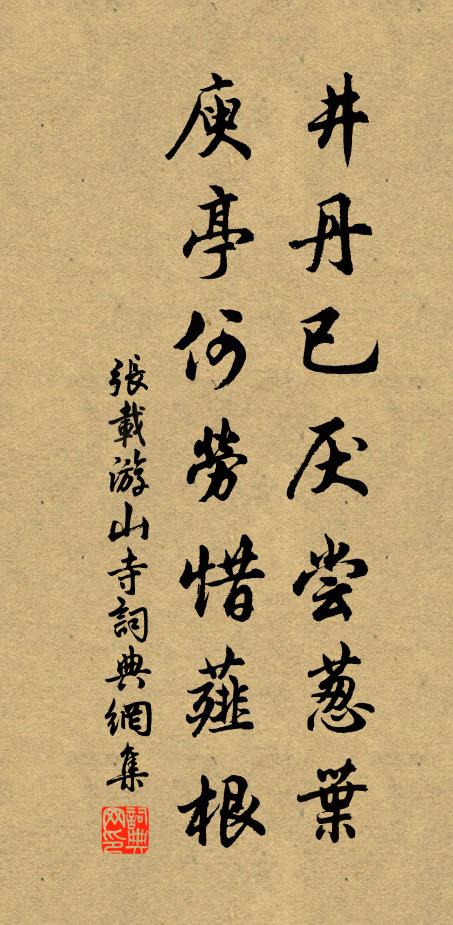 井丹已厌尝葱葉
庾亭何劳惜薤根
張載游山寺詞典網集
詞典網印